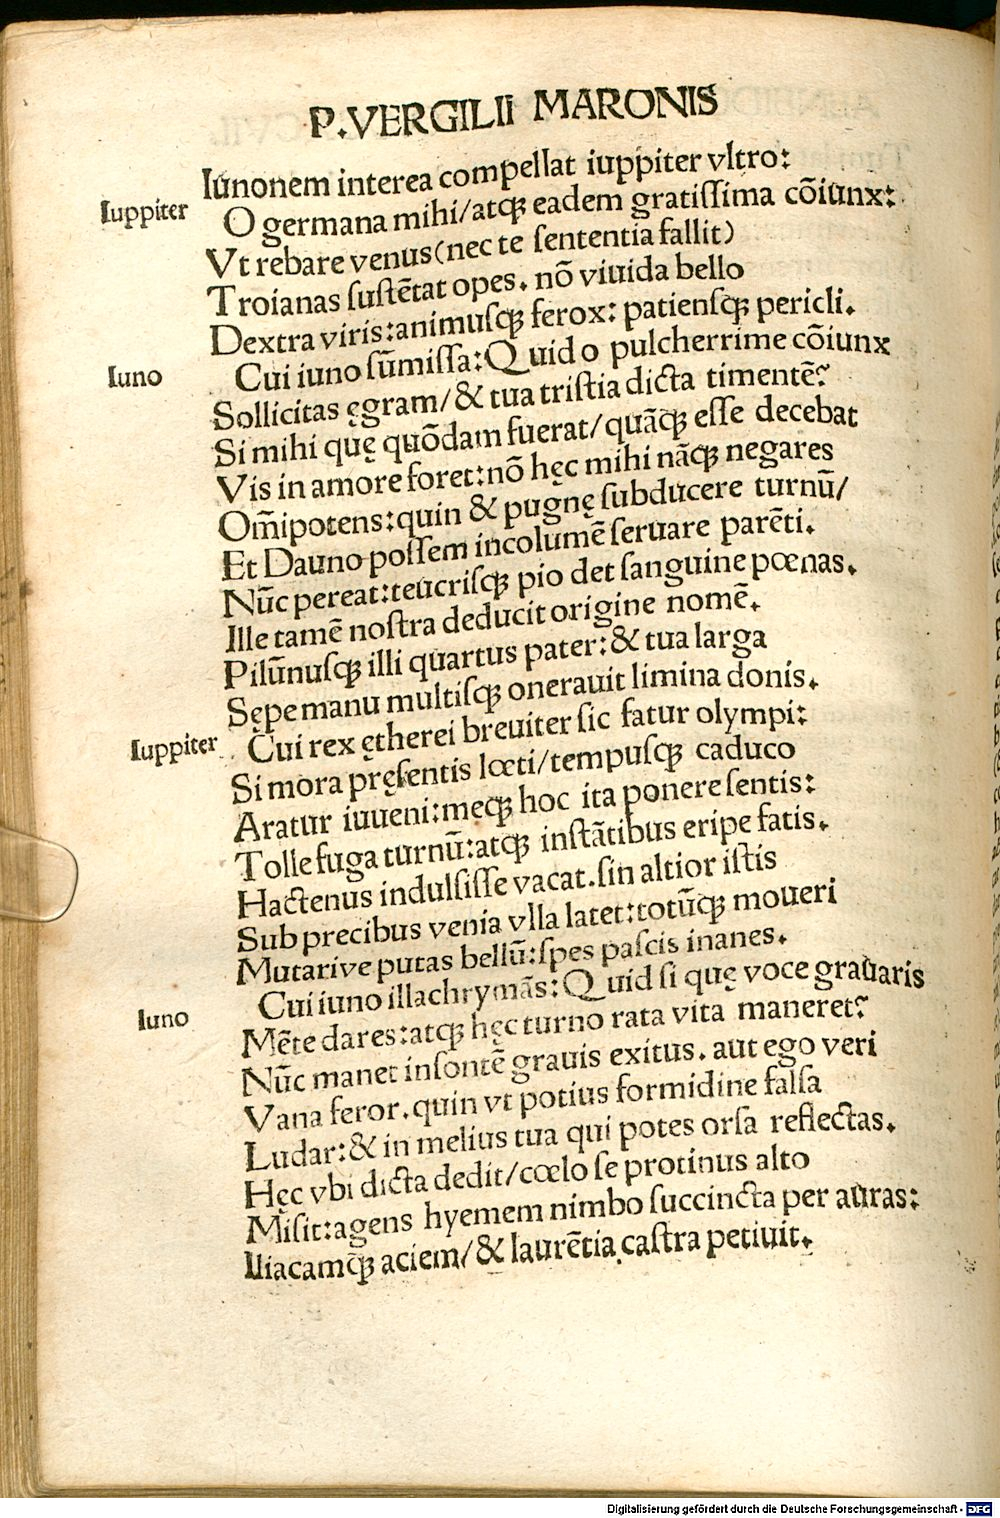 P.VERGILII MARONIS
Iunonem interea compellat iuppiter vltro:
Iuppiter O germana mihi/atqꝫ eadem gratiſſima cõiunx:
Vt rebare venus(nec te ſententia fallit)
Troianas ſuſtẽtat opes. nõ viuida bello
Dextra viris:animuſqꝫ ferox: patienſqꝫ pericli.
Iuno Cui iuno ſũmiſſa:Quid o pulcherrime cõiunx
Sollicitas ęgram/& tua triſtia dicta timentẽ?
Si mihi quę quõdam fuerat/quãqꝫ eſſe decebat
Vis in amore foret:nõ hęc mihi nãqꝫ negares
Om̃ipotens:quin & pugnę ſubducere turnũ/
Et Dauno poſſem incolumẽ ſeruare parẽti.
Nũc pereat:teucriſqꝫ pio det ſanguine pœnas.
Ille tamẽ noſtra deducit origine nomẽ.
Pilũnuſqꝫ illi quartus pater:& tua larga
Sępe manu multiſqꝫ onerauit limina donis.
Iuppiter Cui rex ętherei breuiter ſic fatur olympi:
Si mora pręſentis lœti/tempuſqꝫ caduco
Aratur iuueni:meqꝫ hoc ita ponere ſentis:
Tolle fuga turnũ:atqꝫ inſtãtibus eripe fatis.
Hactenus indulſiſſe vacat.ſin altior iſtis
Sub precibus venia vlla latet:totũqꝫ moueri
Mutarive putas bellũ:ſpes paſcis inanes.
Iuno Cui iuno illachrymãs:Quid ſi quę voce grauaris
Mẽte dares:atqꝫ hęc turno rata vita maneret?
Nũc manet inſontẽ grauis exitus. aut ego veri
Vana feror.quin vt potius formidine falſa
Ludar:& in melius tua qui potes orſa reflectas.
Hęc vbi dicta dedit/cœlo ſe protinus alto
Miſit:agens hyemem nimbo ſuccincta per auras:
Iliacamqꝫ aciem/& laurẽtia caſtra petiuit.
Digitalisierung gefördert durch die Deutsche Forschungsgemeinschaft - DFG